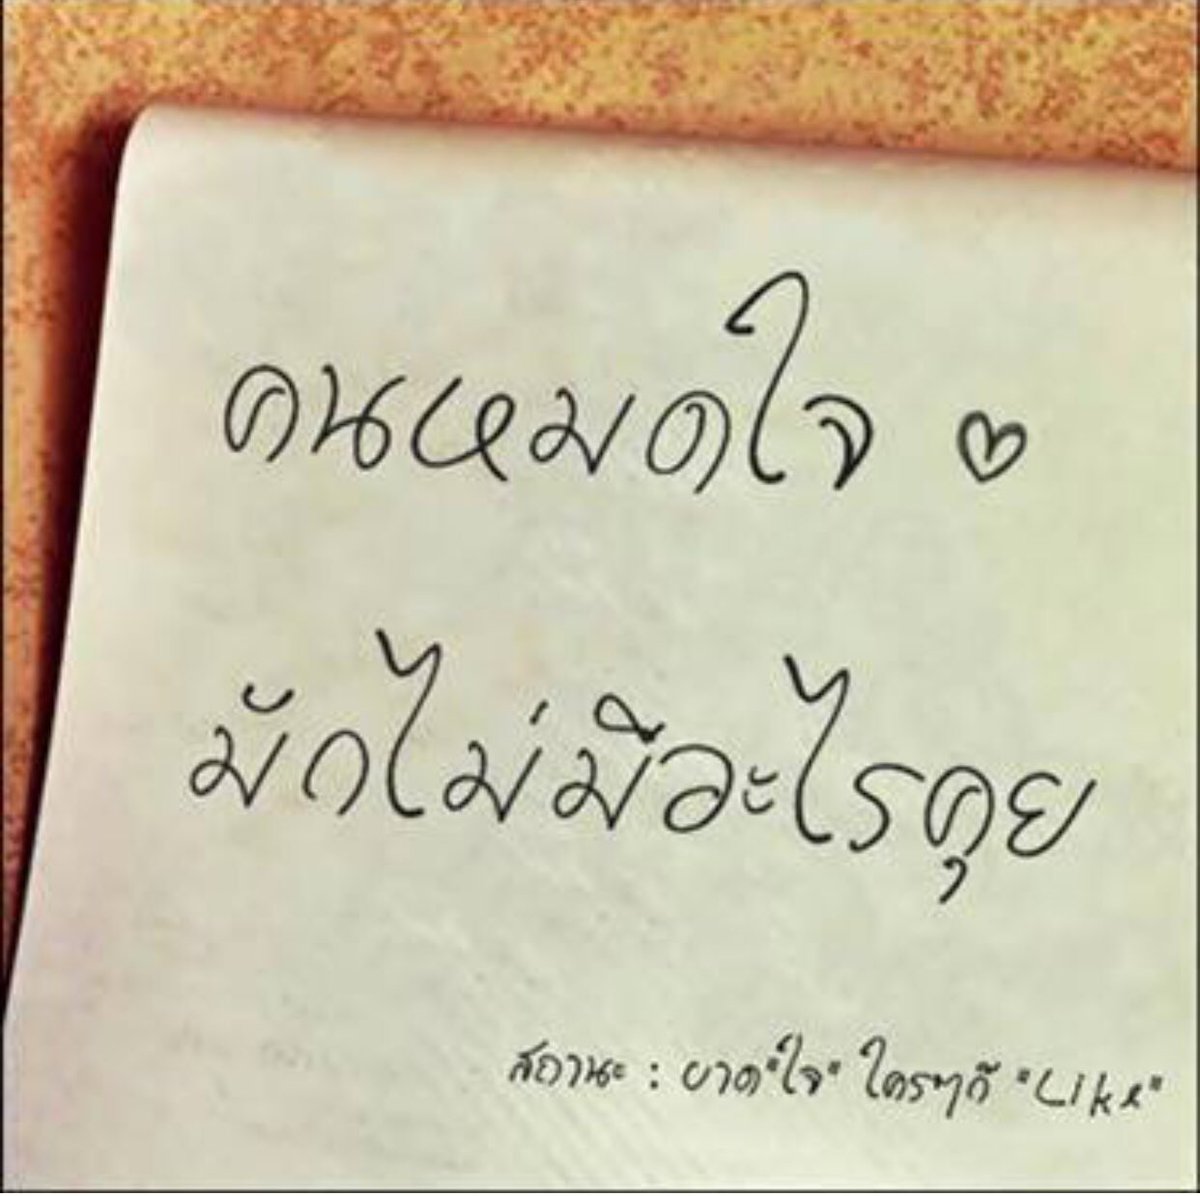 คนหมดใจ ♡
มักไม่มีอะไรคุย
สถานะ : บาด"ใจ" ใครๆก็ "Like"